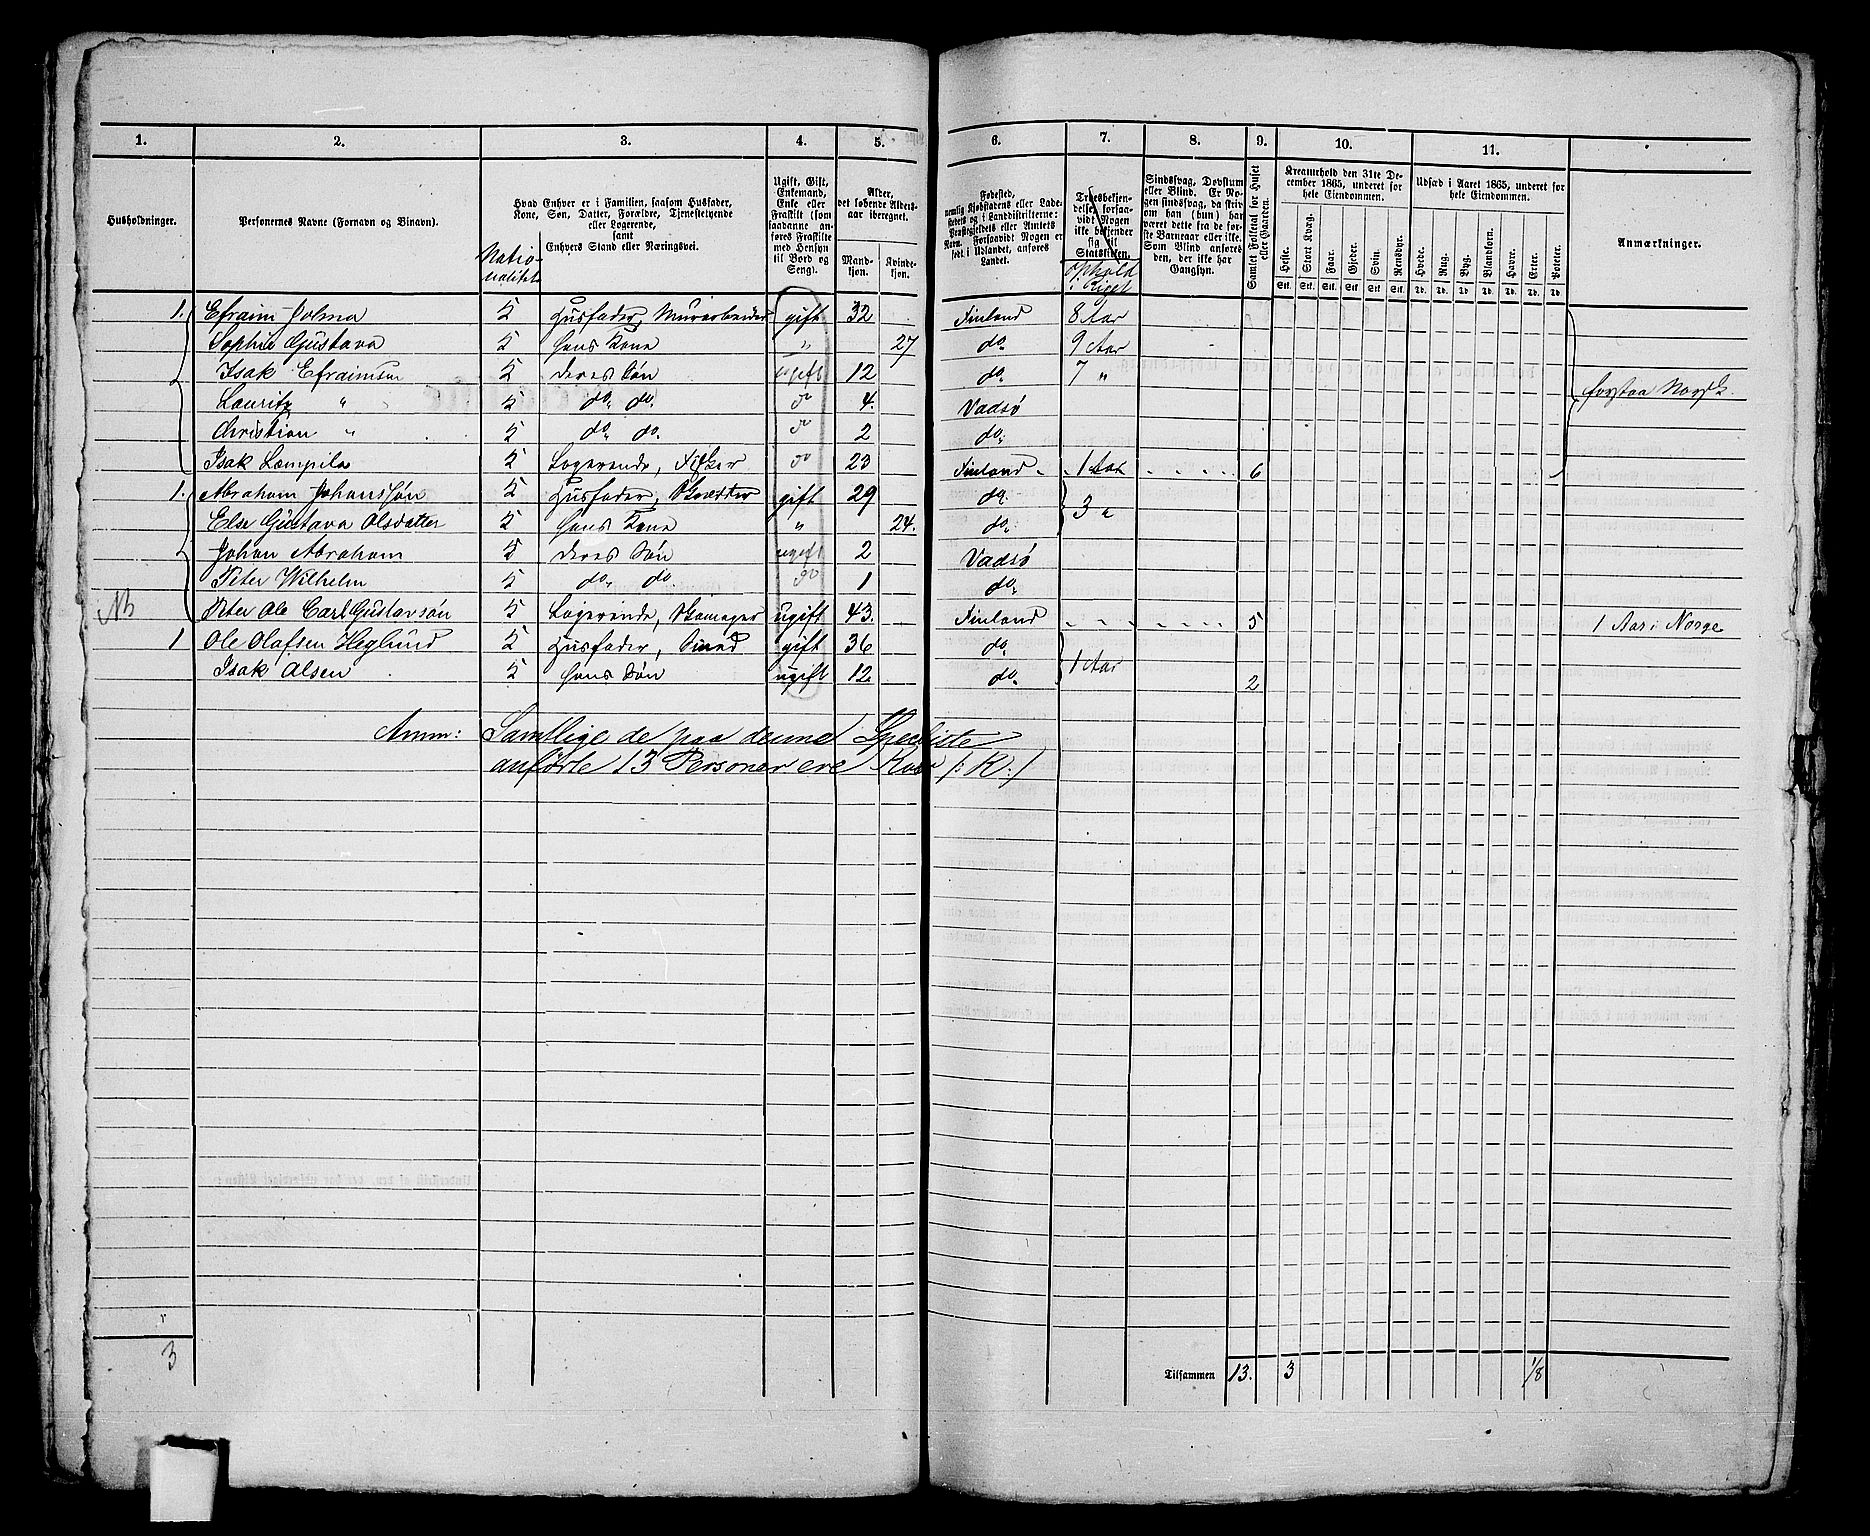 1. 2. 3. 4. 5. 6. 7. 8. 9. 10. 11.
Husholdninger.
Personernes Navne (Fornavn og Binavn).
Hvad Enhver er i Familien, saasom Husfader,
Kone, Søn, Datter, Forældre, Tjenestetyende
eller Logerende,
samt
Enhvers Stand eller Næringsvei.
Natio-
nalitet
Ugift, Gift,
Enkemand,
Enke eller
Fraskilt (som
saadanne an-
føres Fraskilte
med Hensyn
til Bord og
Seng).
Alder,
det løbende Alders-
aar iberegnet.
Mand-
kjøn.
Kvinde-
kjøn.
Fødested,
nemlig Kjøbstadens eller Lade-
stedets og i Landdistrikterne:
Præstegjeldets eller Amtets
Navn. Forsaavidt Nogen er
født i Udlandet, anføres
Landet.
Troesbekjen-
delse, forsaa-
vidt Nogen
ikke bekjender
sig til
Statskirken.
Ophold
i Riget
Sindssvag, Døvstum
eller Blind. Er No-
gen sindssvag, da skriv
om han (hun) har
været dette fra de før-
ste Barneaar eller ikke.
Som Blind anføres
den, der ikke har
Gangsyn.
Samlet Folketal for Huset
eller Gaarden.
Kreaturhold den 31te De-
cember 1865, underet for
hele Eiendommen.
Heste. Stort Kvæg. Faar. Gjeder. Svin. Rensdyr.
Stk. Stk. Stk. Stk. Stk. Stk.
Udsæd i Aaret 1865, underet for
hele Eiendommen.
Hvede. Rug. Byg. Blandkorn. Havre. Erter. Poteter.
Td. Td. Td. Td. Td. Td. Td.
Anmærkninger.
1. Efraim Johna K Husfader, Murarbeider gift 32 Finland 8 Aar
Sophie Gustava K Hans Kone " 27 do. 9 Aar
Isak Efraimsen K deres Søn ugift 12 do. 7 "
Lauritz " K do. do. do 4. Vadsø forstaa Norsk.
Christian " K do. do. do 2 do.
Isak Lampila K Logerende, Fisker do 23 Finland 1 Aar 6
1. Abraham Johanssøn K Husfader, gift 29 do. 3 "
Else Gustava Olsdatter K Hans Kone " 24. do.
Johan Abraham K deres Søn ugift 2 Vadsø
Peter Wilhelm K do. do. do 1 do.
NB Peter Ole Carl Gustavsøn K Logerende, ugift 43. Finland 5 1 Aar i Norge
1 Ole Olafsen Heglund K Husfader, gift 36 do. 1 Aar
Isak Olsen K Hans Søn ugift 12 do. 2
Anm: Samtlige de paa denne Specliste
anførte 13 Personer ere /: K :/
3
Tilsammen 13. 3 1/8